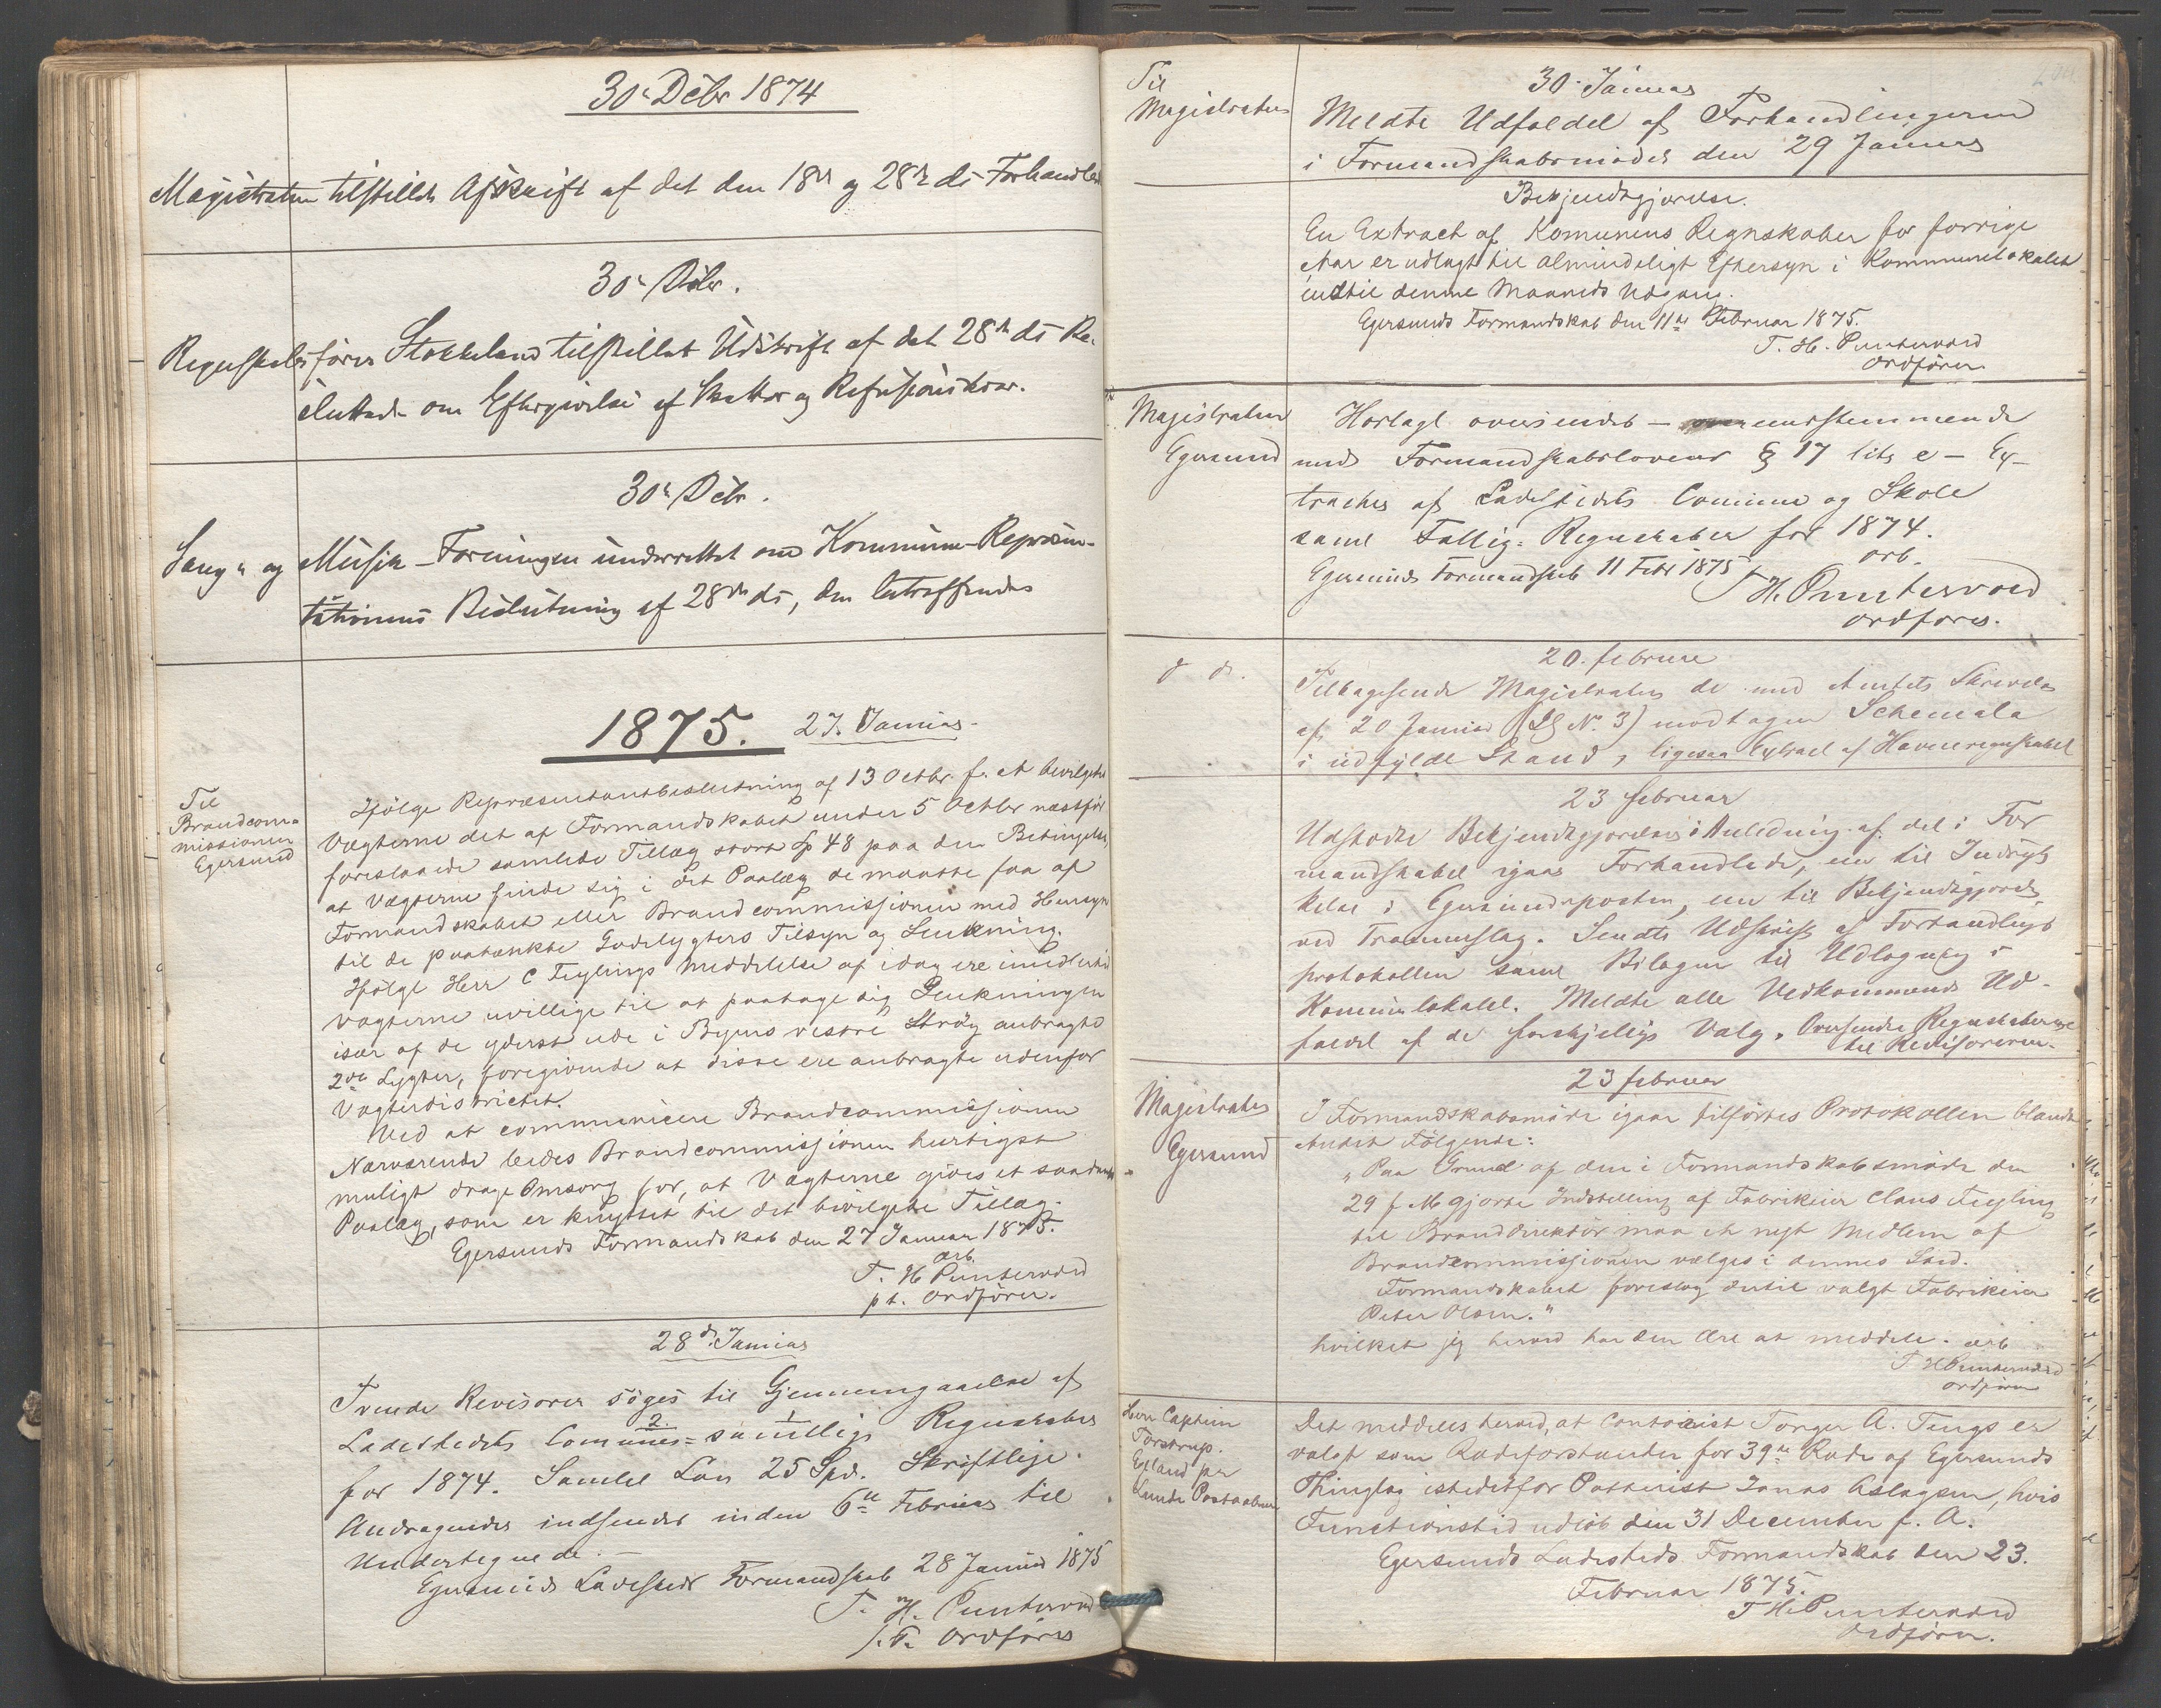 30te Debr 1874
Magistraten tilstillet Afskrift af det den 18de og 28de ds Forhandlede
30te Debr.
Regnskabsfører Stokkeland tilstillet Udskrift af det 28de ds Be-
sluttede om Eftergivelse af Skatter og Refusionskrav.
30te Debr.
Sang- og Musik-Foreningen underrettet om Kommune-Repræsen-
tationens Beslutning af 28de ds, den betræffende
1875. 27. Januar
Til
Brandcom-
missionen
Egersund
Ifølge Repræsentantbeslutning af 13 Octbr. f. A bevilgedes
Vægterne det af Formandskabet under 5 Octbr næstfør
foreslaaede samlede Tillæg stort Sp 48 paa den Betingelse,
at Vægterne finde sig i det Paalæg de maatte faa af
Formandskabet eller Brandcommissionen med Hensyn
til de paatænkte Gadelygters Tilsyn og Slukning.
Ifølge Herr C Feylings Meddelelse af idag ere imidlertid
Vægterne uvillige til at paatage sig Slukningen
især af de yderst ude i Byens vestre Strøg anbragte
2de Lygter, foregivende at disse ere anbragte udenfor
Vægterdistrictet.
Ved at communicere Brandcommissionen
Nærværende bedes Brandcommissionen hurtigst
muligt drage Omsorg for, at Vægterne gives et saadant
Paalæg, som er knyttet til det bevilgede Tillæg.
Egersunds Formandskab den 27 Januar 1875.
ærb.
T. H. Puntervold
p t. Ordfører.
28de Januar
Tvende Revisorer søges til Gjennemgaaelse af
Ladestedets Communes= samtlige Regnskaber
for 1874. Samlet Løn 25 Spd. Skriftlige
Andragender indsendes inden 6te Februar til
Undertegnede.
Egersunds Ladesteds Formandskab 28 Januar 1875
T. H. Puntervold
f. T. Ordfører
Til
Magistraten
30. Januar
Meldte Udfaldet af Forhandlingerne
i Formandskabsmødet den 29 Januar
Bekjendtgjørelse.
En Extract af Komunens Regnskaber for forrige
Aar er udlagt til almindeligt Eftersyn i Kommunelokalet
indtil denne Maaneds Udgang.
Egersunds Formandskab den 11te Februar 1875.
T. H. Puntervold
Ordfører
Magistraten
Egersund
Hoslagt oversendes – overensstemmende
med Formandskabslovens § 17 litr e – Ex-
tracter af Ladestedets Comune og Skole
samt Fattig= Regnskaber for 1874.
Egersunds Formandskab 11 Febr 1875
ærb.
T H. Puntervold
Ordfører.
d ds.
20. februar
Tilbagesendt Magistraten de med Amtets Skrivelse
af 20 Januar (N. 3) modtagne Schemata
i udfyldt Stand, ligesaa Extract af Havneregnskabet
23 februar
Udstedte Bekjendtgjørelser i Anledning af det i For
mandskabet igaar Forhandlede, en til Indryk
kelse i Egersundsposten, en til Bekjendtgjørelse
ved Trommeslag. Sendte Udskrift af Forhandlings
protokollen samt Bilagene til Udlægning i
Komunelokalet. Meldte alle Vedkommende Ud-
faldet af de forskjellige Valg. Oversendte Regnskaberne
til Revisorerne.
Magistraten
Egersund
23 februar
I Formandskabsmøde igaar tilførtes Protokollen blandt
Andet Følgende:
„Paa Grund af den i Formandskabsmøde den
29 f. M gjorte Indstilling af Fabrikeier Claus Feyling
til Branddirektør maa et nyt Medlem af
Brandcommissionen vælges i dennes Sted.
Formandskabet foreslog dertil valgt Fabrikeier
Peter Olsen."
hvilket jeg herved har den Ære at meddele.
ærb
T H Puntervold
Ordfører
Herr Captein
Torstrup.
Eeland pr
Lunde Postaabneri
Det meddeles herved, at Contorist Torger A. Tengs er
valgt som Rodeforstander for 39te Rode af Egersunds
Thinglag istedetfor Potterist Jonas Aslagsen, hvis
Functionstid udløb den 31 December f. A.
Egersunds Ladesteds Formandskab den 23.
Februar 1875.
T H. Puntervold
Ordfører.